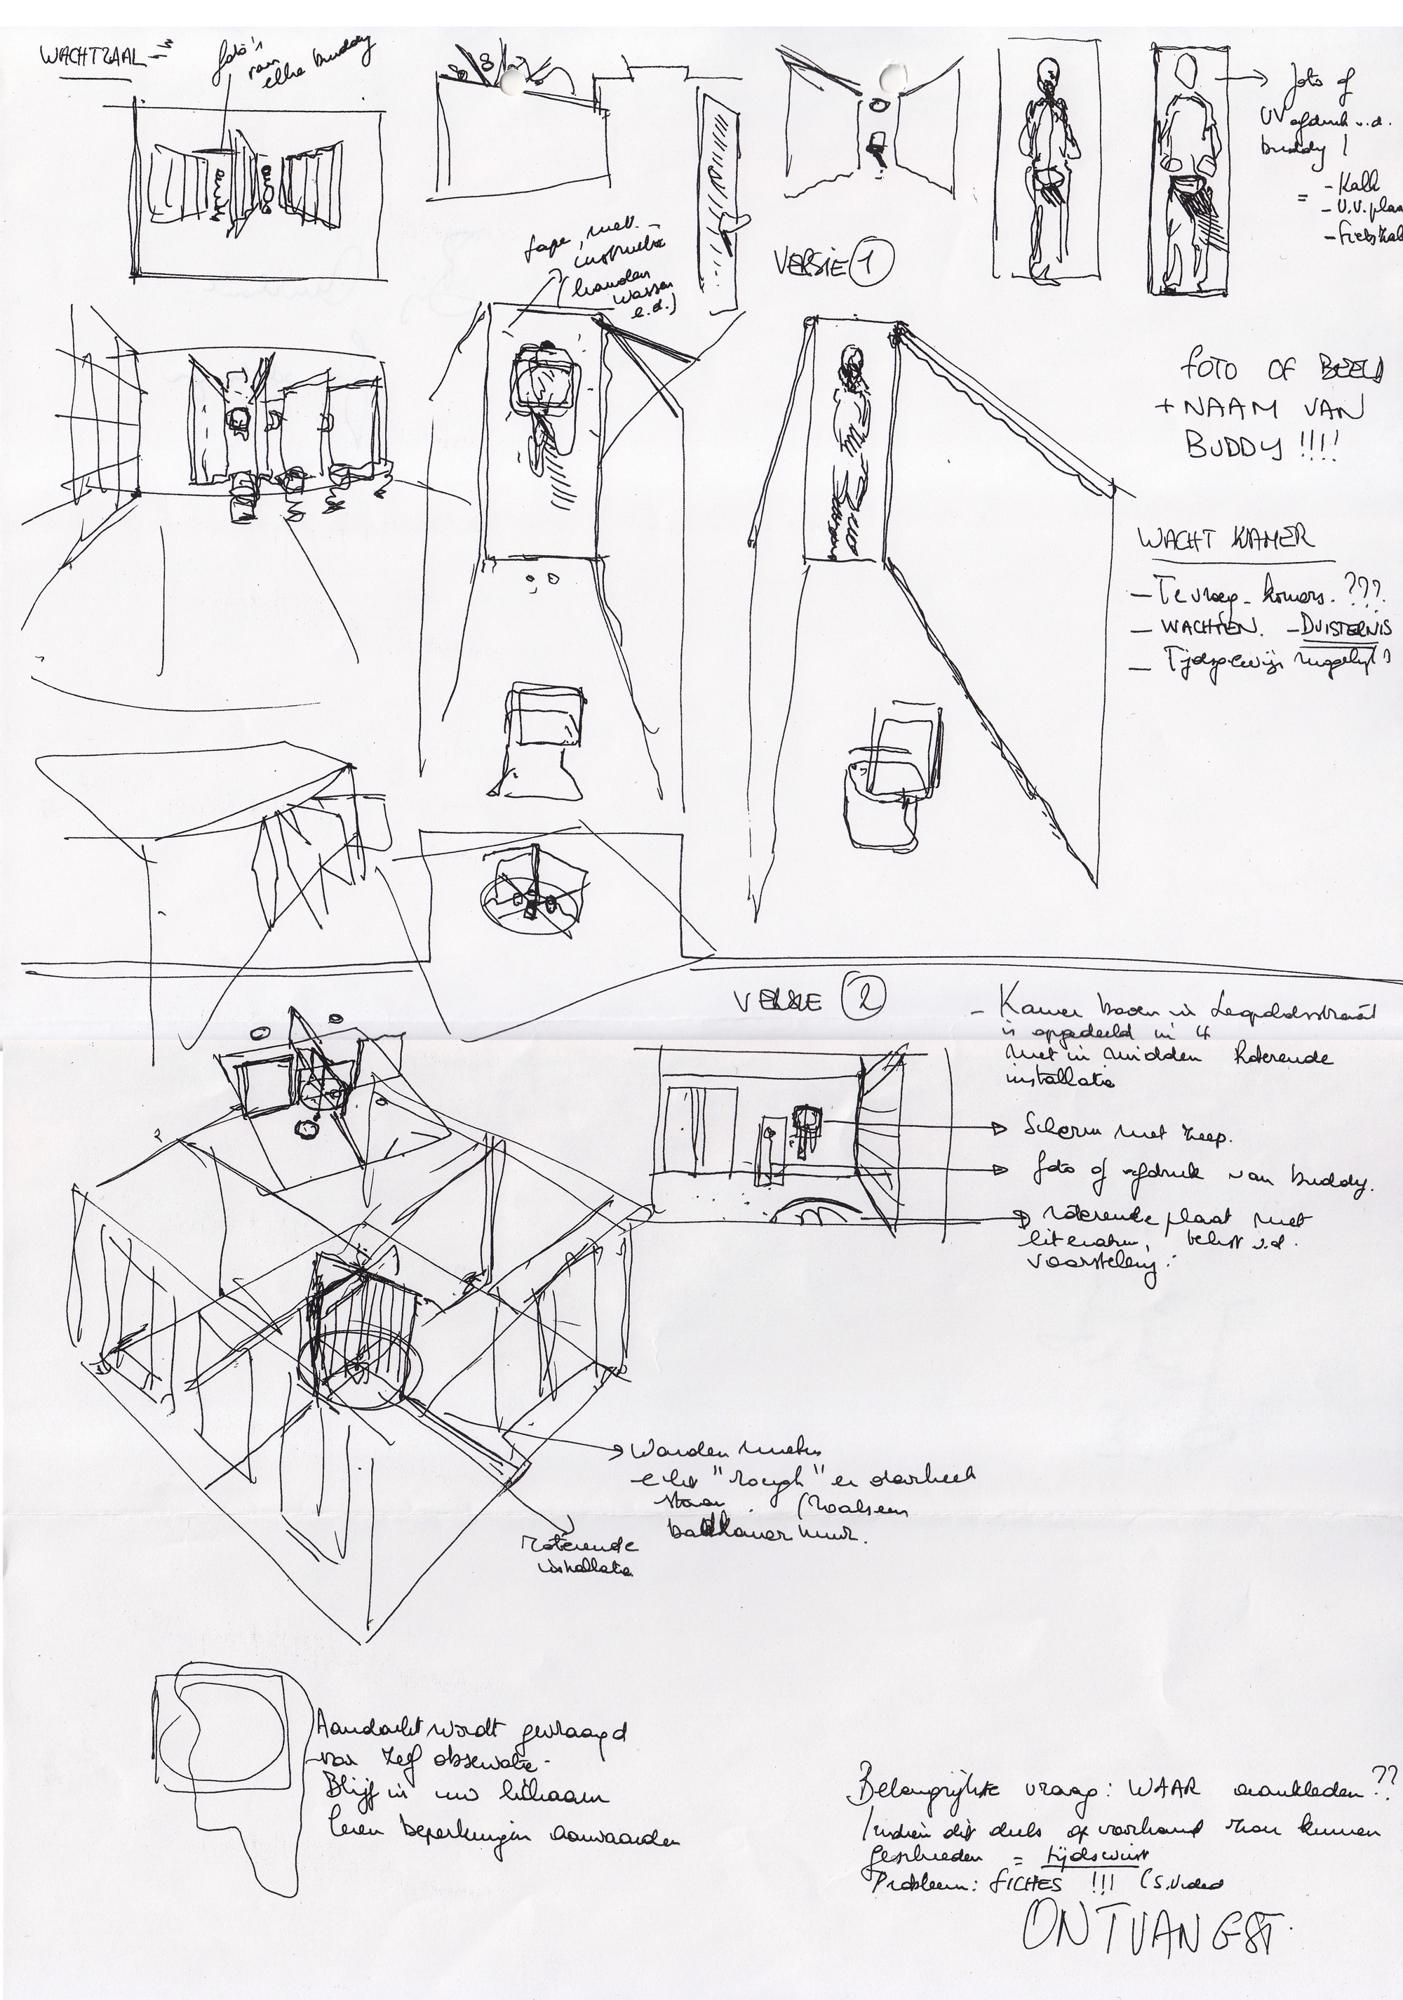 WACHTZAAL
foto's
van
elke buddy
foto of
UV afdruk v.d.
buddy !
= - Kalk
- U.V. plaa
VERSIE 1
tape, met
instructie
(handen
wassen
e.d.)
FOTO OF BEELD
+ NAAM VAN
BUDDY !!!!
WACHT KAMER
- Te vroeg komers. ???
- WACHTEN. - DUISTERNIS
- Tijdsgewijs mogelijk?
VERSIE 2
- Kamer boven in Leopoldstraat
is opgedeeld in 4
met in midden Roterende
installatie
Scherm met zeep.
foto of afdruk van buddy.
roterende plaat met
literatuur, tekst v.d.
voorstelling.
Wanden moeten
echt "rough" en doorleefd
badkamer muur.
roterende
installatie
Aandacht wordt gevraagd
voor zelf observatie -
Blijf in uw lichaam
leren beperkingen aanvaarden
Belangrijkste vraag: WAAR omkleden ??
Indien dit deels op voorhand zou kunnen
geschieden = tijdswinst
Probleem: FICHES !!! (S.Video
ONTVANGST.